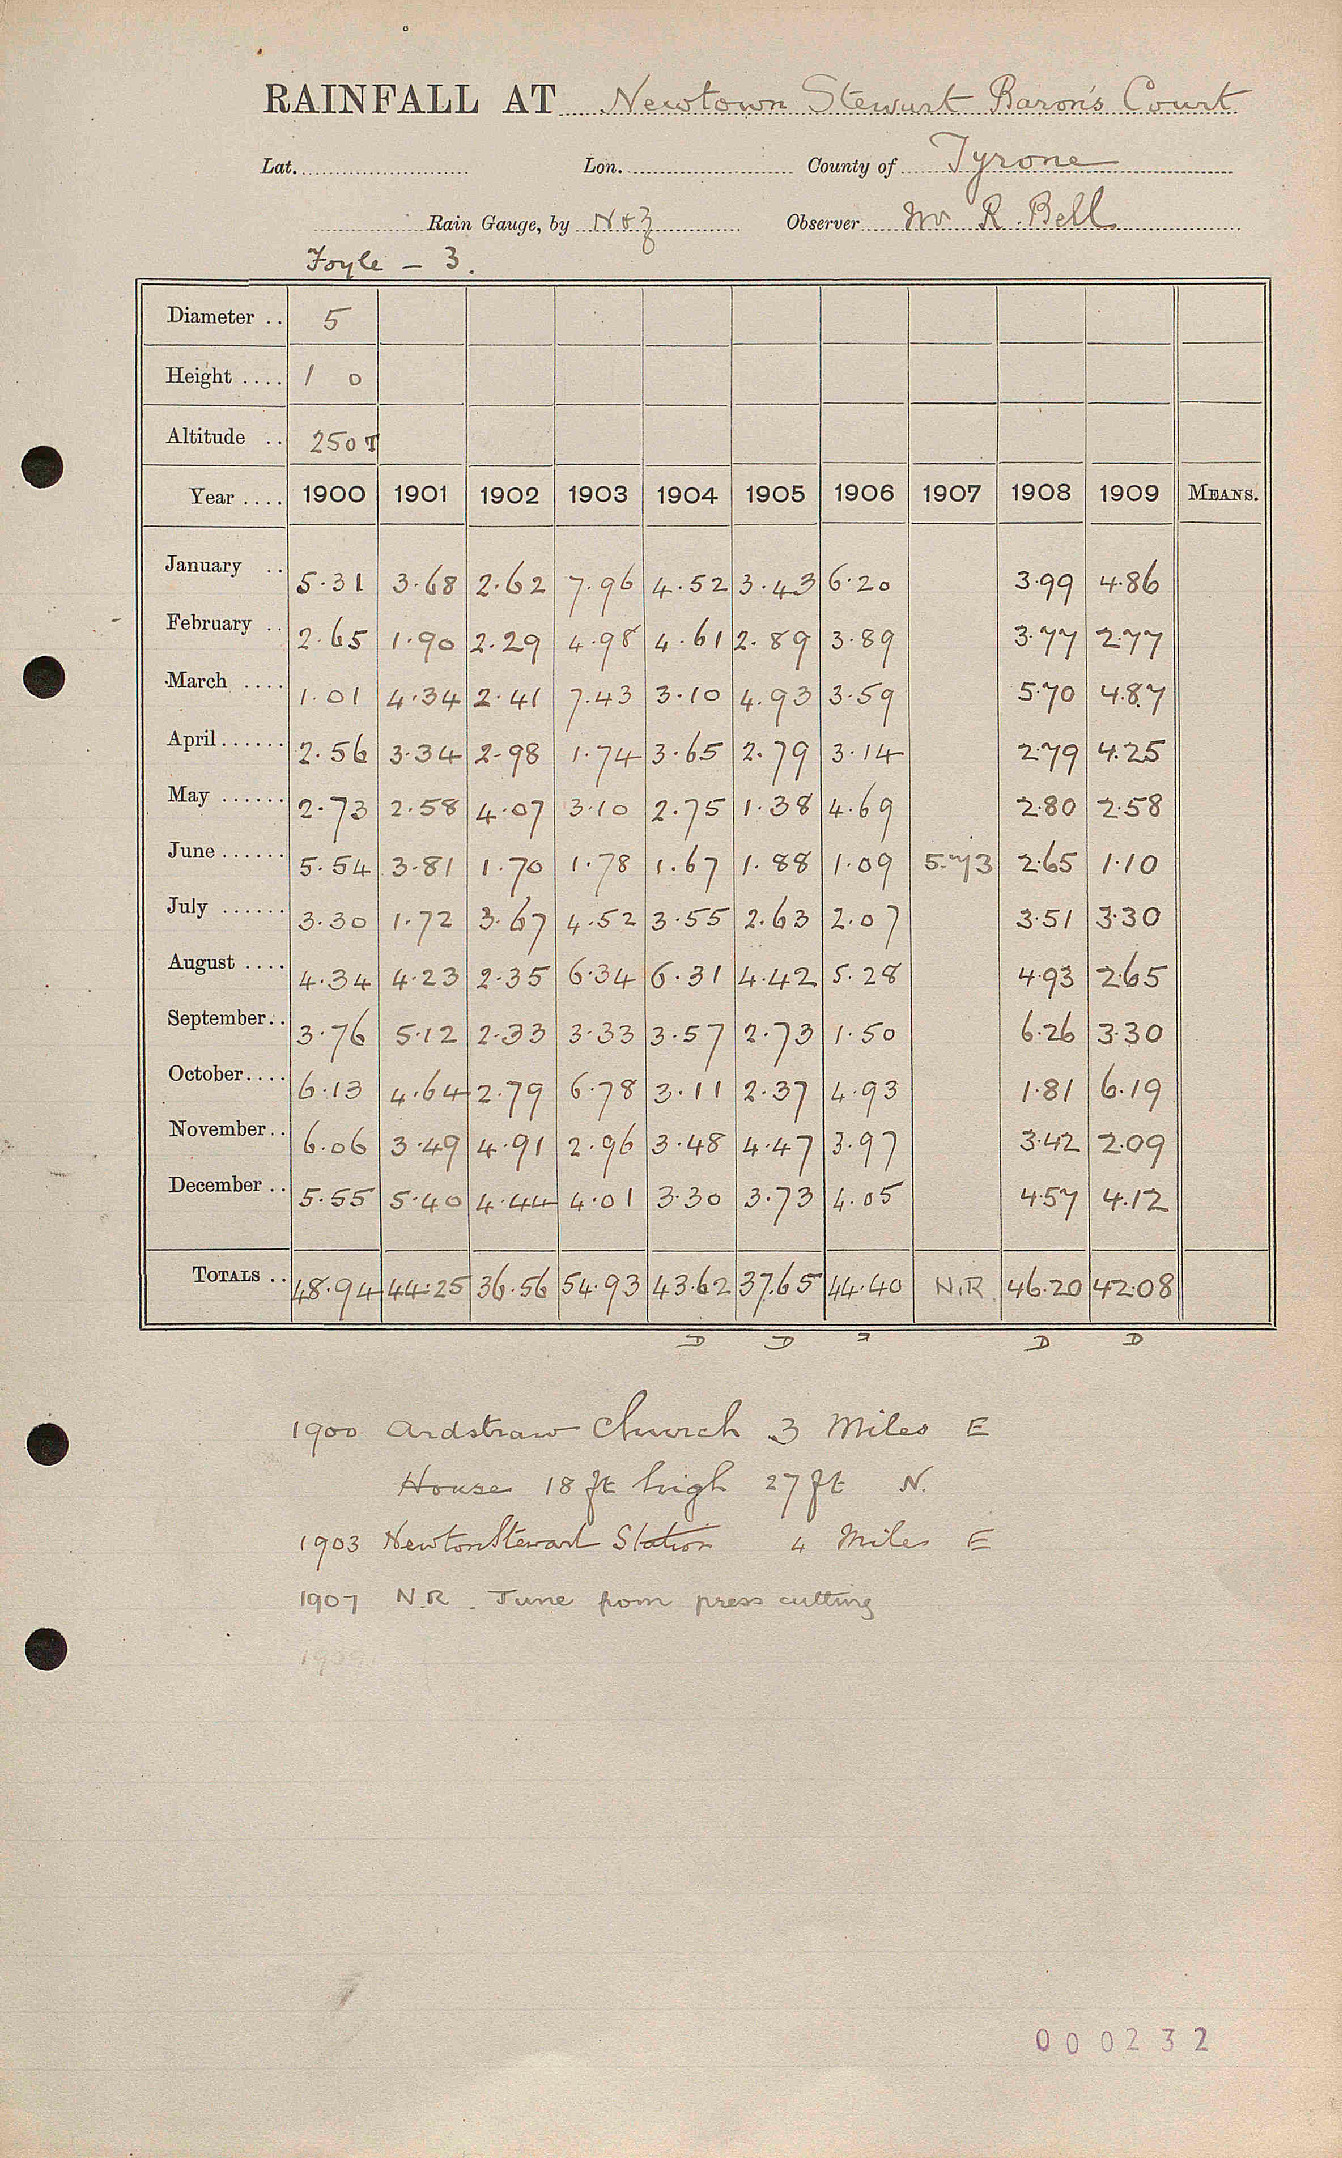 RAINFALL AT Newtown Stewart Baron's Court
Lat. Lon. County of Tyrone
Rain Gauge, by N & Z Observer Mr R. Bell
Foyle - 3.
Diameter .. 5
Height .... 1 0
Altitude .. 250 T
Year .... 1900 1901 1902 1903 1904 1905 1906 1907 1908 1909 MEANS.
January .. 5.31 3.68 2.62 7.96 4.52 3.43 6.20 3.99 4.86
February .. 2.65 1.90 2.29 4.98 4.61 2.89 3.89 3.77 2.77
March .... 1.01 4.34 2.41 7.43 3.10 4.93 3.59 5.70 4.87
April...... 2.56 3.34 2.98 1.74 3.65 2.79 3.14 2.79 4.25
May ...... 2.73 2.58 4.07 3.10 2.75 1.38 4.69 2.80 2.58
June ...... 5.54 3.81 1.70 1.78 1.67 1.88 1.09 5.73 2.65 1.10
July ...... 3.30 1.72 3.67 4.52 3.55 2.63 2.07 3.51 3.30
August .... 4.34 4.23 2.35 6.34 6.31 4.42 5.28 4.93 2.65
September.. 3.76 5.12 2.33 3.33 3.57 2.73 1.50 6.26 3.30
October.... 6.13 4.64 2.79 6.78 3.11 2.37 4.93 1.81 6.19
November.. 6.06 3.49 4.91 2.96 3.48 4.47 3.97 3.42 2.09
December .. 5.55 5.40 4.44 4.01 3.30 3.73 4.05 4.57 4.12
TOTALS .. 48.94 44.25 36.56 54.93 43.62 37.65 44.40 N.R. 46.20 42.08
D D D D
1900 Ardstraw Church 3 Miles E
House 18 ft high 27 ft N.
1903 NewtonStewart Station 4 Miles E
1907 N.R. June from press cutting
000232